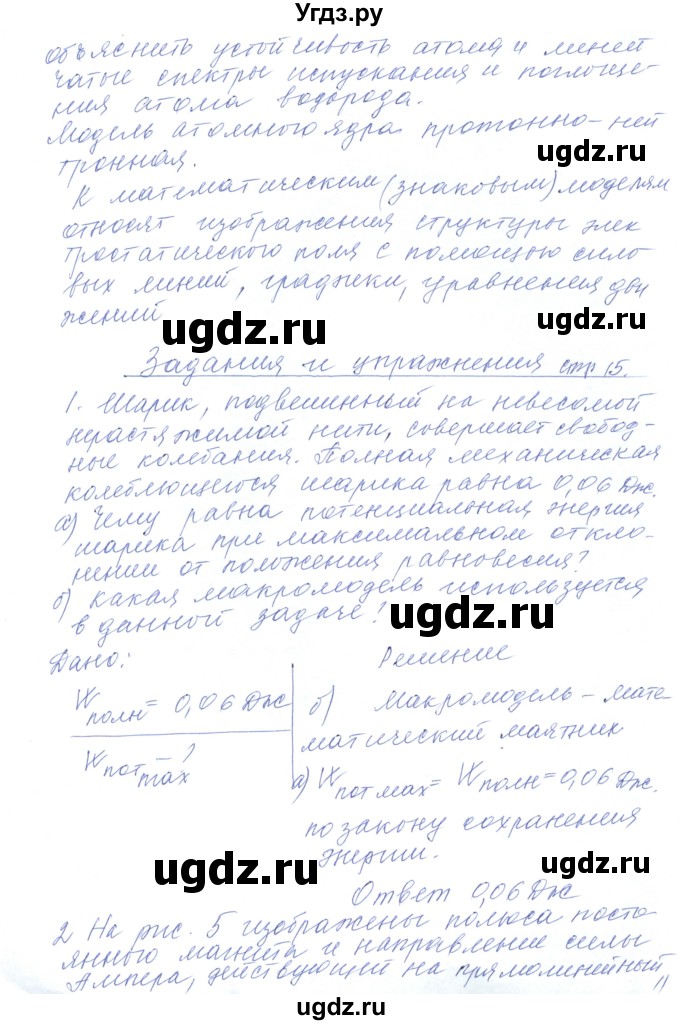 Угдз.ру
объяснить устойчивость атома и линей
чатые спектры испускания и поглоще-
ния атома водорода.
Модель атомного ядра протонно-ней
тронная.
ugdz.ru
К математическим (знаковым) моделям
относят изображения структуры элек
тростатического поля с помощью сило
вых линий, графики, уравнения дви
жений
ugdz.ru
ugdz.ru
Задания и упражнения стр 15.
1. Шарик, подвешенный на невесомой
нерастяжимой нити, совершает свобод-
ные колебания. Полная механическая
колеблющегося шарика равна 0,06 Дж.
а) Чему равна потенциальная энергия
шарика при максимальном откло-
нении от положения равновесия?
б) какая макромодель используется
в данной задаче?
ugdz.ru
Дано:
Wполн = 0,06 Дж
Wпот max - ?
Решение
б) Макромодель - мате
матический маятник
а) Wпот мах = Wполн = 0,06 Дж.
по закону сохранения
энергии.
ugdz.ru
ugdz.ru
Ответ 0,06 Дж
2 На рис. 5 изображены полюса посто-
янного магнита и направление силы
Ампера, действующей на прямолинейный
ugdz.ru